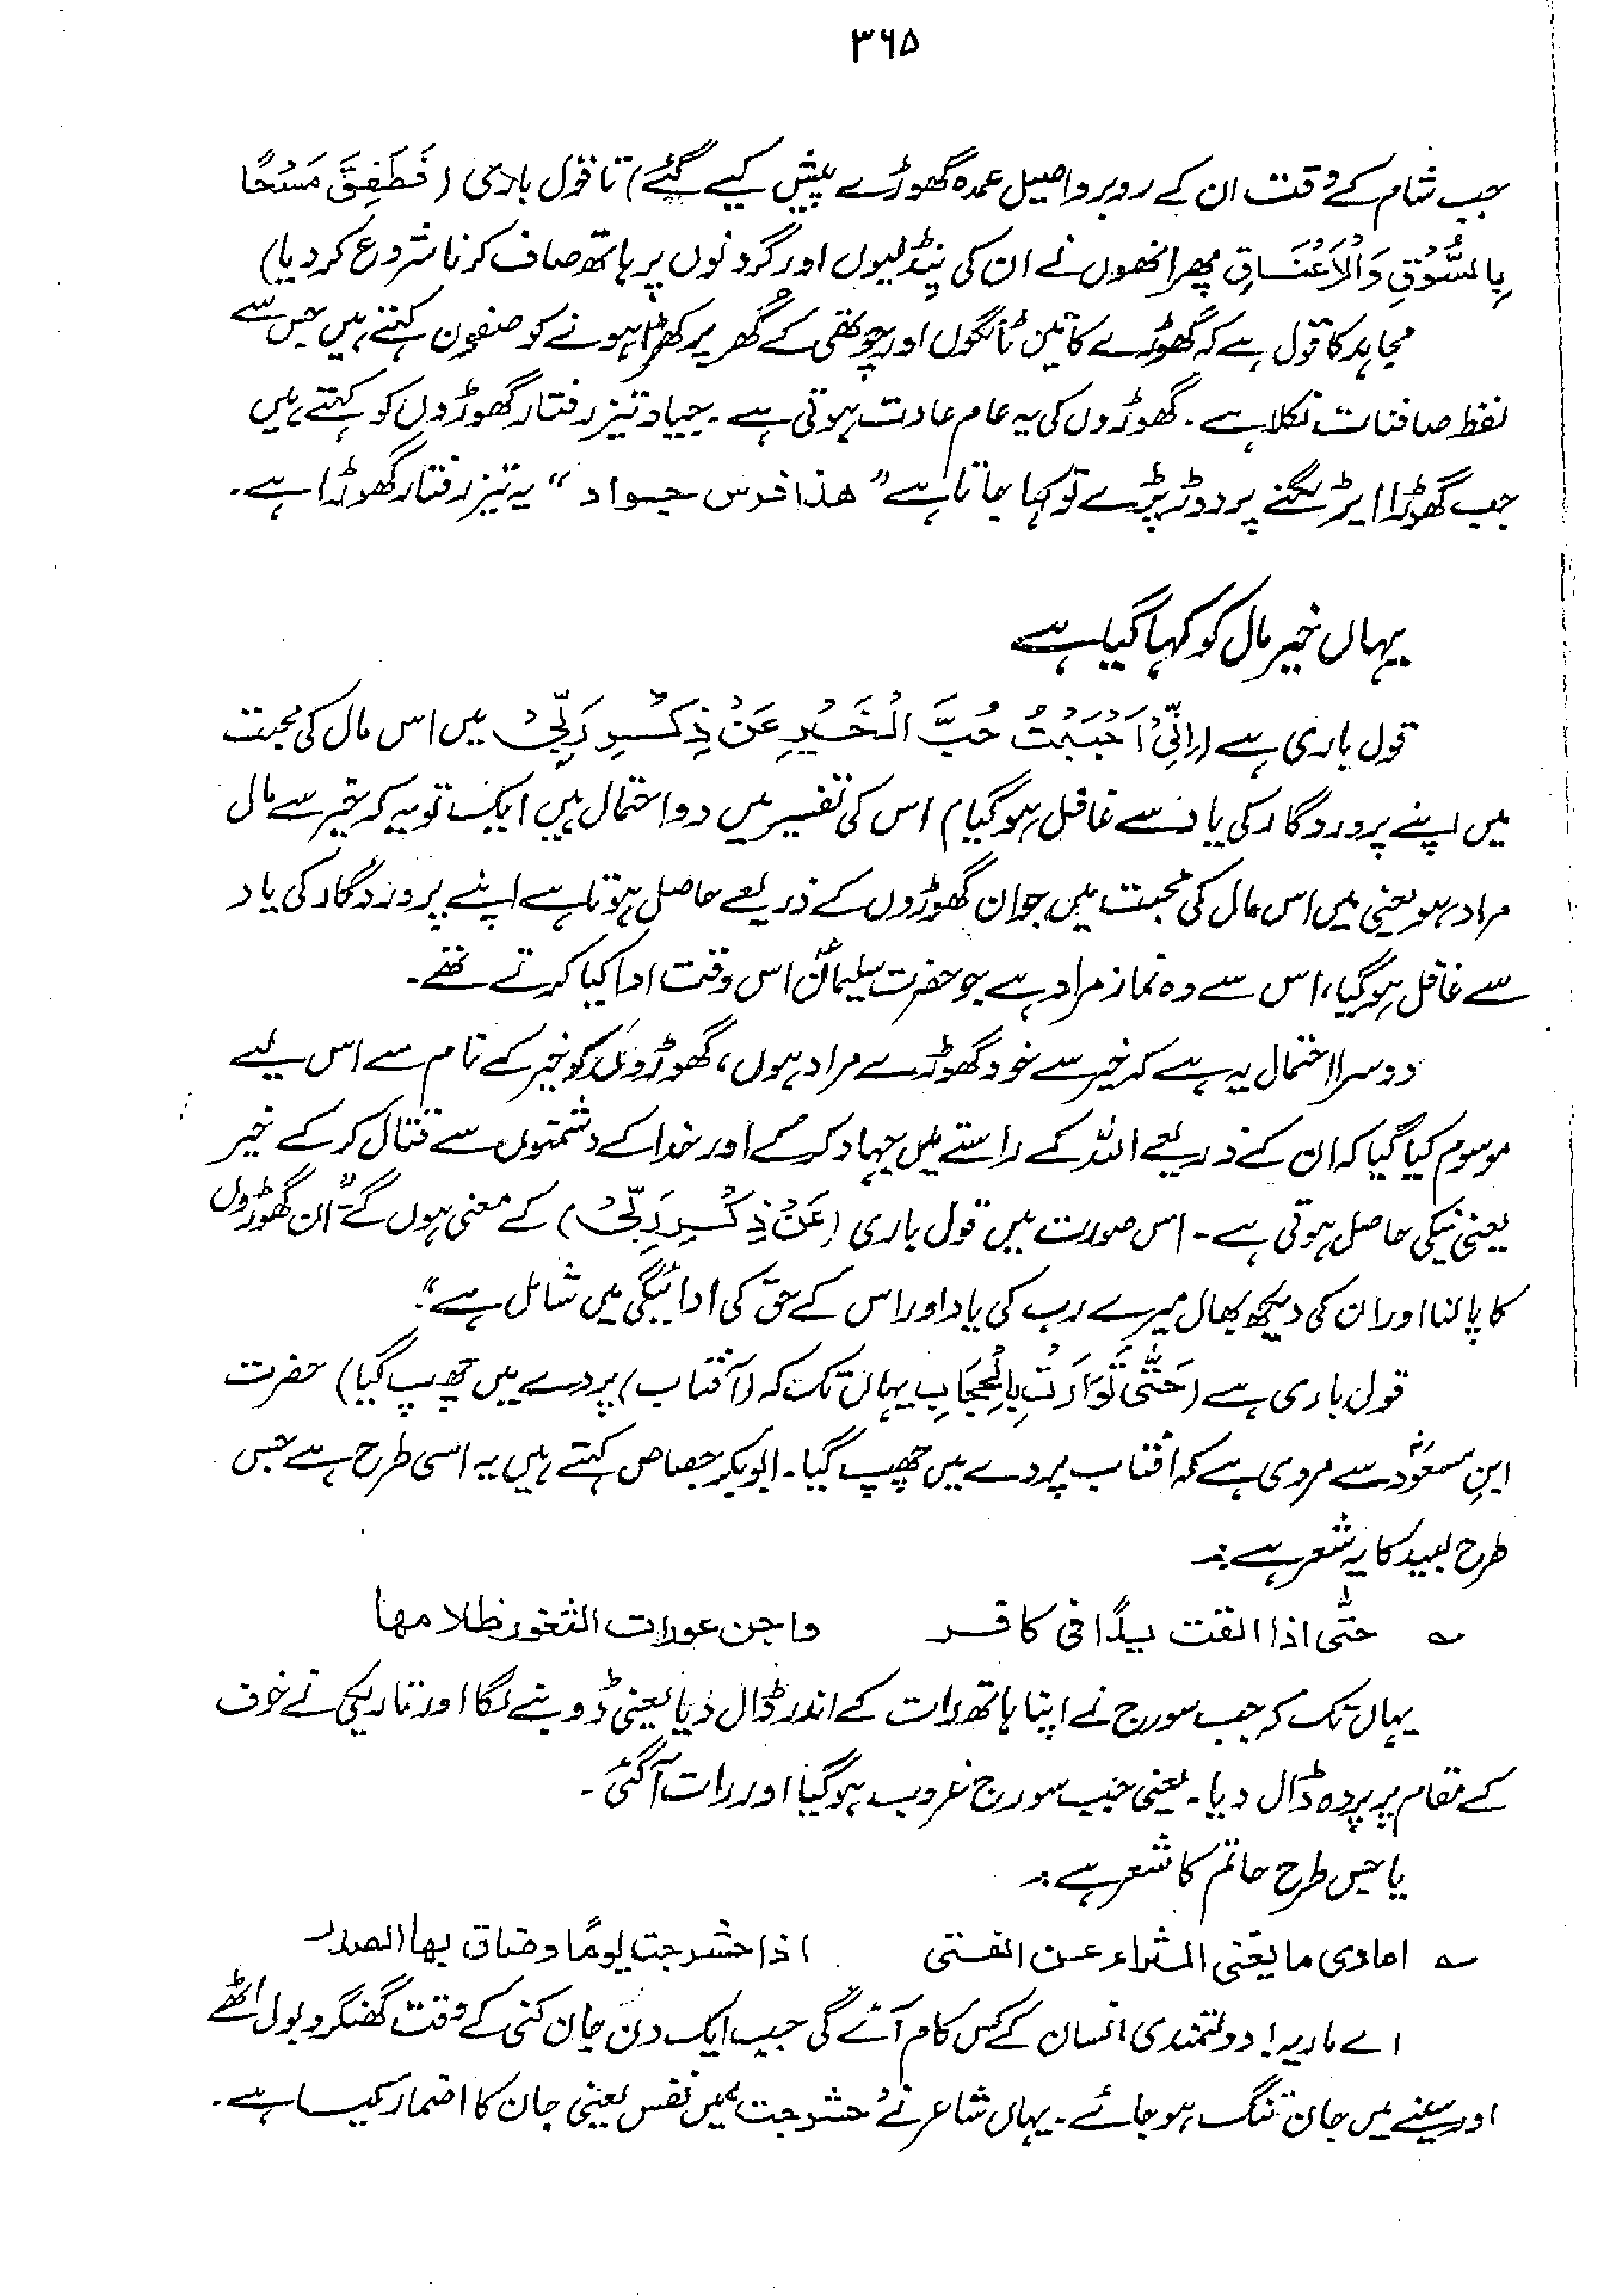 ۳۶۵
جب شام کے وقت ان کے روبرو اصیل عمدہ گھوڑے پیش کیے گئے) تا قول باری (فَطَفِقَ مَسْحًا
بِالسُّوْقِ وَالْاَعْنَاقِ پھر انھوں نے ان کی پنڈلیوں اور گردنوں پر ہاتھ صاف کرنا شروع کر دیا)
مجاہد کا قول ہے کہ گھوڑے کا تین ٹانگوں اور چوتھی کے کُھر پر کھڑا ہونے کو صفون کہتے ہیں جس سے
لفظ صافنات نکلا ہے۔ گھوڑوں کی یہ عام عادت ہوتی ہے۔ جیاد تیز رفتار گھوڑوں کو کہتے ہیں
جب گھوڑا ایڑ لگنے پر دوڑ پڑے تو کہا جاتا ہے "ھذا فرس جواد" یہ تیز رفتار گھوڑا ہے۔
یہاں خیر مال کو کہا گیا ہے
قول باری ہے (اِنِّیْ اَحْبَبْتُ حُبَّ الْخَیْرِ عَنْ ذِکْرِ رَبِّیْ میں اس مال کی محبت
میں اپنے پروردگار کی یاد سے غافل ہو گیا) اس کی تفسیر میں دو احتمال ہیں ایک تو یہ کہ خیر سے مال
مراد ہو یعنی میں اس مال کی محبت میں جو ان گھوڑوں کے ذریعے حاصل ہوتا ہے اپنے پروردگار کی یاد
سے غافل ہو گیا، اس سے وہ نماز مراد ہے جو حضرت سلیمانؑ اس وقت ادا کیا کرتے تھے۔
دوسرا احتمال یہ ہے کہ خیر سے خود گھوڑے مراد ہوں، گھوڑوں کو خیر کے نام سے اس لیے
موسوم کیا گیا کہ ان کے ذریعے اللہ کے راستے میں جہاد کر کے اور خدا کے دشمنوں سے قتال کر کے خیر
یعنی نیکی حاصل ہوتی ہے۔ اس صورت میں قول باری (عَنْ ذِکْرِ رَبِّیْ) کے معنی ہوں گے "ان گھوڑوں
کا پالنا اور ان کی دیکھ بھال میرے رب کی یاد اور اس کے حق کی ادائیگی میں شامل ہے"۔
قول باری ہے (حَتّٰی تَوَارَتْ بِالْحِجَابِ یہاں تک کہ (آفتاب) پردے میں چھپ گیا) حضرت
ابن مسعودؓ سے مروی ہے کہ آفتاب پردے میں چھپ گیا۔ ابوبکر جصاص کہتے ہیں یہ اسی طرح ہے جس
طرح لبید کا یہ شعر ہے:۔
؎ حتّٰی اذا القت یدًا فی کافر واجن عورات الثغور ظلامھا
یہاں تک کہ جب سورج نے اپنا ہاتھ رات کے اندر ڈال دیا یعنی ڈوبنے لگا اور تاریکی نے خوف
کے مقام پر پردہ ڈال دیا۔ یعنی جب سورج غروب ہو گیا اور رات آ گئی۔
یا جس طرح حاتم کا شعر ہے:۔
؎ اماوی ما یغنی الثراء عن الفتی اذا حشرجت یومًا وضاق بھا الصدر
اے ماریہ! دولتمندی انسان کے کس کام آئے گی جب ایک دن جان کنی کے وقت گھنگرو بول اٹھے
اور سینے میں جان تنگ ہو جائے۔ یہاں شاعر نے "حشرجت" میں نفس یعنی جان کا اضمار کیا ہے۔